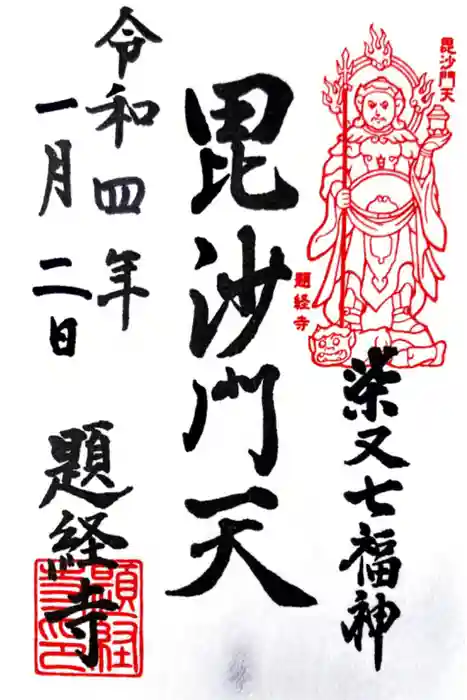 毘沙門天
題経寺
柴又七福神
毘沙門天
令和四年
一月二日
題経寺
題経寺